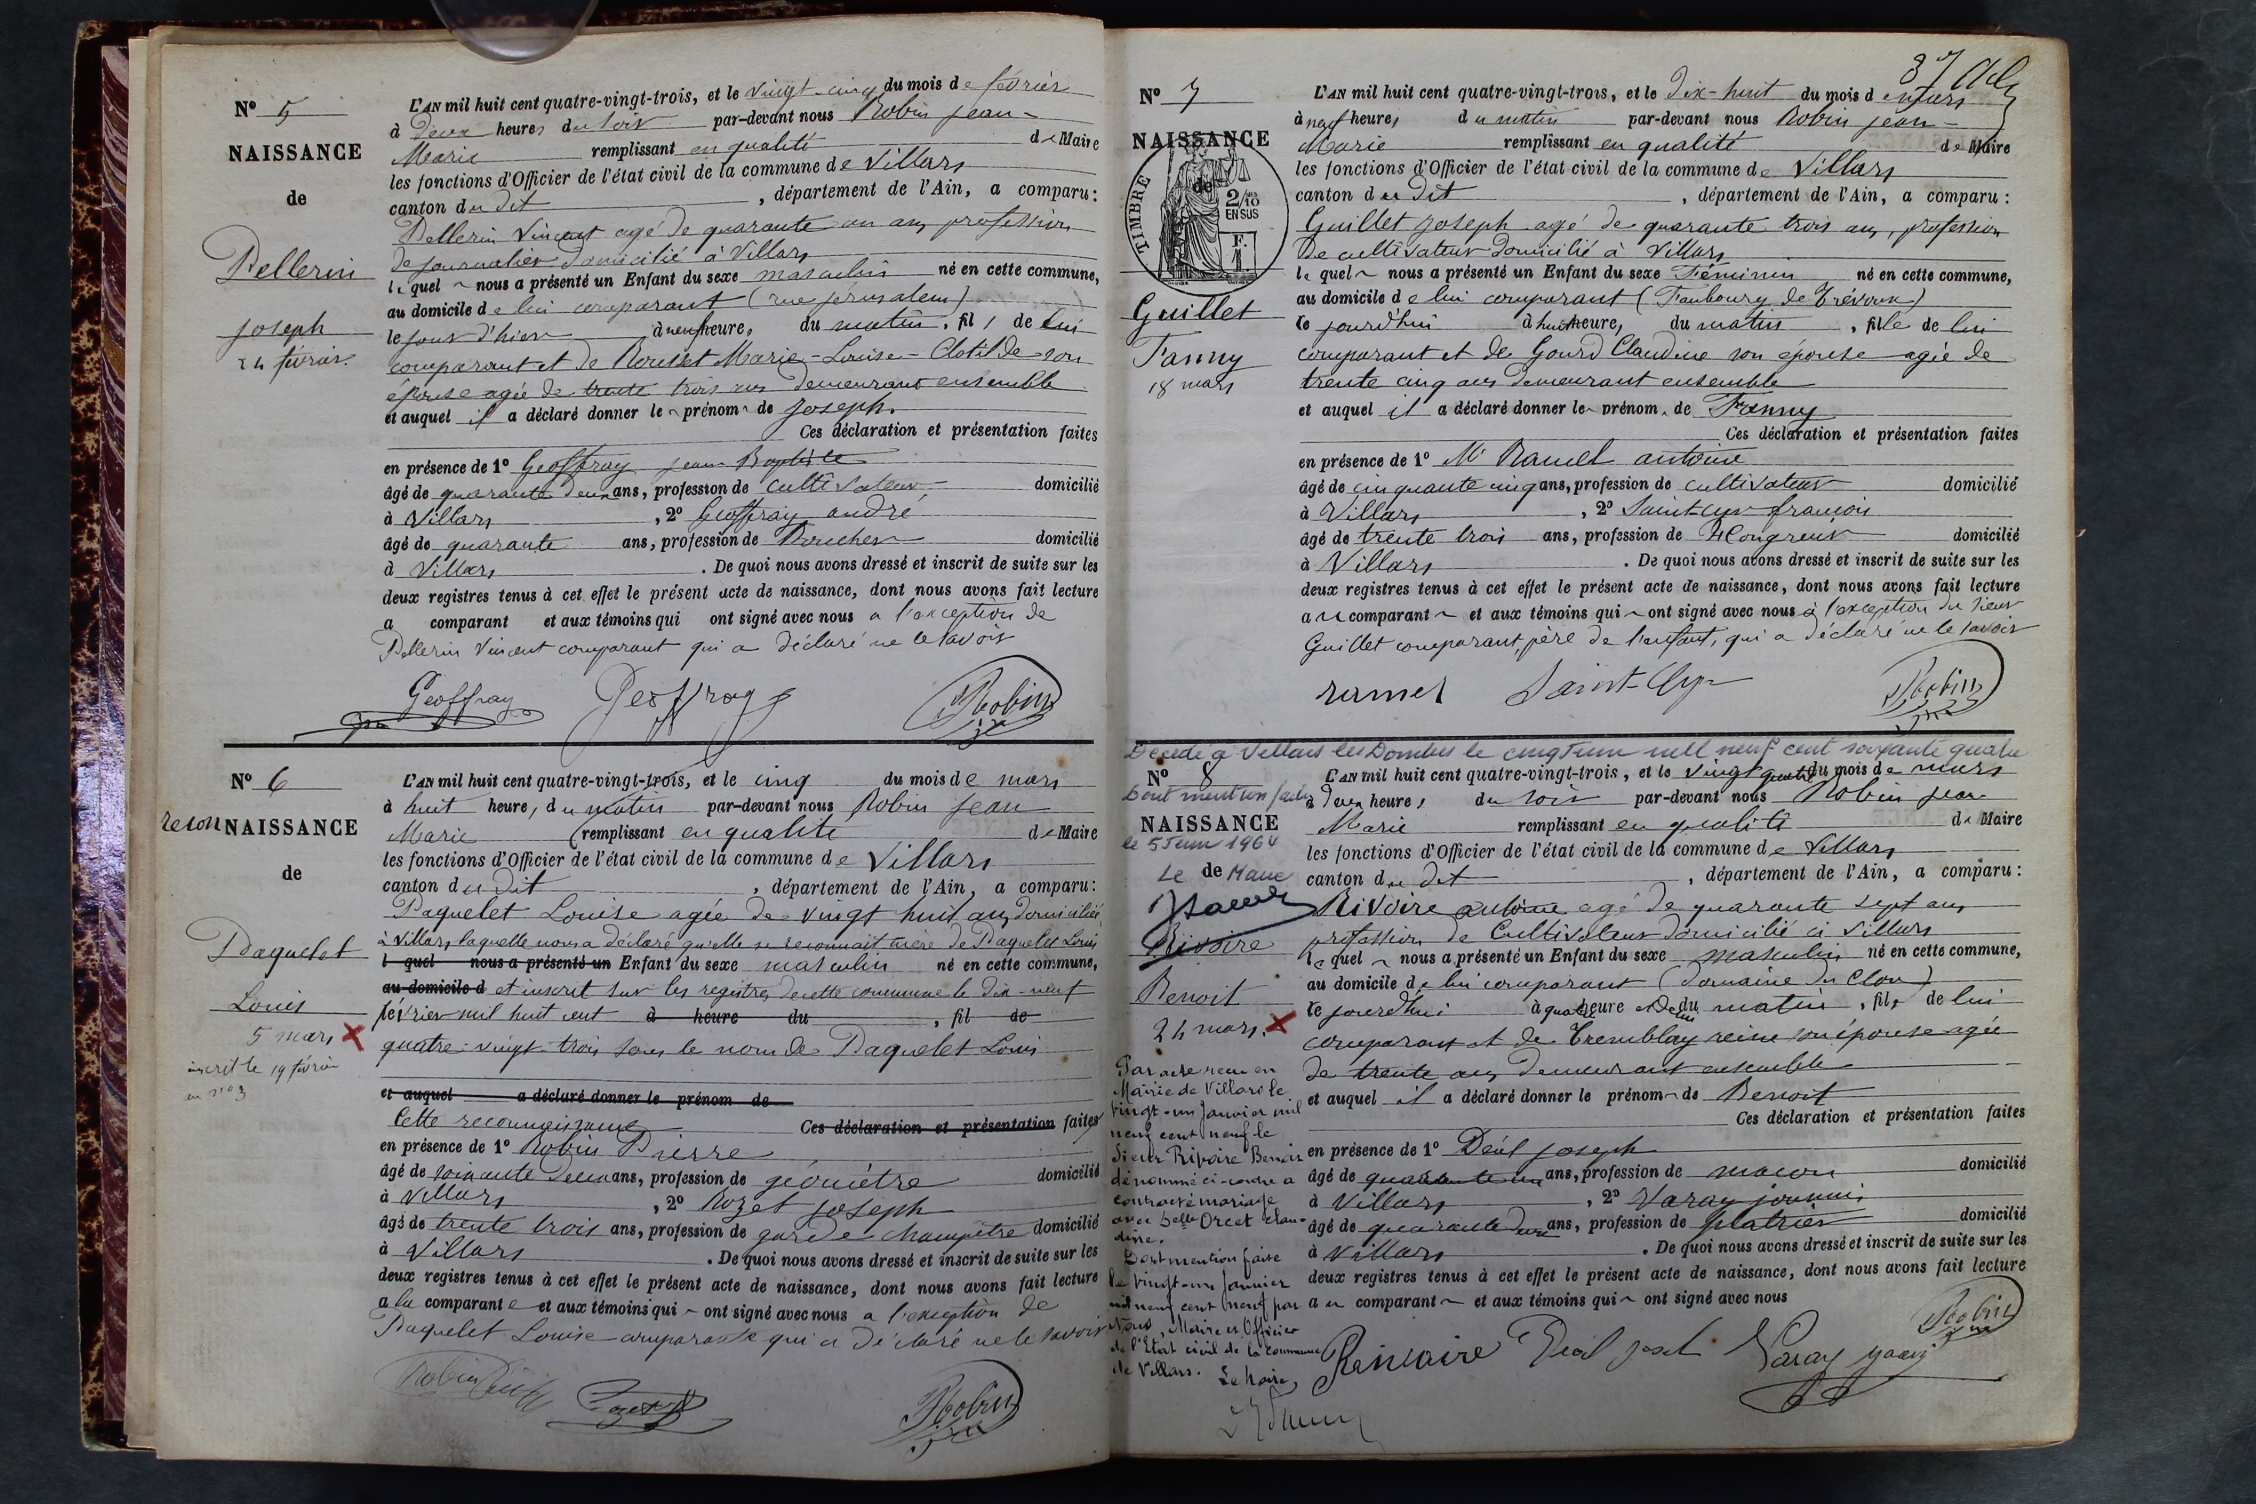 N° 5
NAISSANCE
de
Pellerin
Joseph
24 février
L'AN mil huit cent quatre-vingt-trois, et le vingt-cinq du mois de février
à deux heures du soir par-devant nous Robin Jean-
Marie remplissant en qualité de Maire
les fonctions d'Officier de l'état civil de la commune de Villars
canton du dit , département de l'Ain, a comparu:
Pellerin Vincent agé de quarante un ans profession
de journalier domicilié à Villars
lequel nous a présenté un Enfant du sexe masculin né en cette commune,
au domicile de lui comparant (rue Jérusalem)
le jour d'hier à neuf heures du matin, fils de lui
comparant et de Rousset Marie-Louise-Clotilde son
épouse agée de trente trois ans demeurant ensemble
et auquel il a déclaré donner le prénom de Joseph.
Ces déclaration et présentation faites
en présence de 1° Geoffray Jean Baptiste
âgé de quarante deux ans, profession de cultivateur domicilié
à Villars , 2° Geoffray andré
âgé de quarante ans, profession de Boucher domicilié
à Villars . De quoi nous avons dressé et inscrit de suite sur les
deux registres tenus à cet effet le présent acte de naissance, dont nous avons fait lecture
a comparant et aux témoins qui ont signé avec nous a l'exception de
Pellerin Vincent comparant qui a déclaré ne le savoir
Geoffray Geoffray Robin
N° 6
recon NAISSANCE
de
Paquelet
Louis
5 mars
inscrit le 19 février
au n° 3
L'AN mil huit cent quatre-vingt-trois, et le cinq du mois de mars
à huit heures du matin par-devant nous Robin Jean
Marie remplissant en qualité de Maire
les fonctions d'Officier de l'état civil de la commune de Villars
canton du dit , département de l'Ain, a comparu:
Paquelet Louise agée de vingt huit ans domiciliée
à Villars, laquelle nous a déclaré qu'elle se reconnait mère de Paquelet Louis
l quel nous a présenté un Enfant du sexe masculin né en cette commune,
au domicile d et inscrit sur les registres de cette commune le dix-neuf
février mil huit cent à heure du , fil de
quatre-vingt-trois sous le nom de Paquelet Louis
et auquel a déclaré donner le prénom de
Cette reconnaissance Ces déclaration et présentation faites
en présence de 1° Robin Pierre
âgé de soixante deux ans, profession de géomètre domicilié
à Villars , 2° Rozet Joseph
âgé de trente trois ans, profession de garde champêtre domicilié
à Villars . De quoi nous avons dressé et inscrit de suite sur les
deux registres tenus à cet effet le présent acte de naissance, dont nous avons fait lecture
a la comparante et aux témoins qui ont signé avec nous a l'exception de
Paquelet Louise comparante qui a déclaré ne le savoir
Robin
37
N° 7
NAISSANCE
de
TIMBRE
2/10
EN SUS
F.
1
Guillet
Fanny
18 mars
L'AN mil huit cent quatre-vingt-trois, et le dix-huit du mois de mars
à neuf heures du matin par-devant nous Robin Jean-
Marie remplissant en qualité de Maire
les fonctions d'Officier de l'état civil de la commune de Villars
canton du dit , département de l'Ain, a comparu:
Guillet Joseph agé de quarante trois ans, profession
de cultivateur domicilié à Villars
lequel nous a présenté un Enfant du sexe Féminin né en cette commune,
au domicile de lui comparant (Faubourg de Trévoux)
ce jourd'hui à huit heures du matin, fille de lui
comparant et de Gourd Claudine son épouse agée de
trente cinq ans demeurant ensemble
et auquel il a déclaré donner le prénom de Fanny
Ces déclaration et présentation faites
en présence de 1° Mr Ramel antoine
âgé de cinquante cinq ans, profession de cultivateur domicilié
à Villars , 2° Saint-Cyr françois
âgé de trente trois ans, profession de Hongreur domicilié
à Villars . De quoi nous avons dressé et inscrit de suite sur les
deux registres tenus à cet effet le présent acte de naissance, dont nous avons fait lecture
au comparant et aux témoins qui ont signé avec nous à l'exception du sieur
Guillet comparant, père de l'enfant, qui a déclaré ne le savoir
ramel Saint-Cyr Robin
Décédé à Villars les Dombes le cinq Juin mil neuf cent soixante quatre
N° 8
Dont mention faite
NAISSANCE
le 5 Juin 1964
Le de Maire
Rivoire
Benoit
24 mars.
Par acte reçu en
Mairie de Villars le
vingt-un Janvier mil
neuf cent neuf le
sieur Rivoire Benoit
dénommé ci-contre a
contracté mariage
avec Delle Orcet Clau-
dine.
Dont mention faite
le vingt-un Janvier
mil neuf cent neuf par
nous, Maire et Officier
de l'Etat civil de la Commune
de Villars. Le Maire,
L'AN mil huit cent quatre-vingt-trois, et le vingt quatre du mois de mars
à deux heures du soir par-devant nous Robin Jean
Marie remplissant en qualité de Maire
les fonctions d'Officier de l'état civil de la commune de Villars
canton du dit , département de l'Ain, a comparu:
Rivoire antoine agé de quarante sept ans
profession de Cultivateur domicilié à Villars
lequel nous a présenté un Enfant du sexe masculin né en cette commune,
au domicile de lui comparant (domaine du Clou)
ce jourd'hui à quatre heure et demi du matin, fils de lui
comparant et de Tremblay reine son épouse agée
de trente ans demeurant ensemble
et auquel il a déclaré donner le prénom de Benoit
Ces déclaration et présentation faites
en présence de 1° Déal Joseph
âgé de quarante un ans, profession de maçon domicilié
à Villars , 2° Varay
âgé de quarante deux ans, profession de platrier domicilié
à Villars . De quoi nous avons dressé et inscrit de suite sur les
deux registres tenus à cet effet le présent acte de naissance, dont nous avons fait lecture
au comparant et aux témoins qui ont signé avec nous
Déal Varay Robin